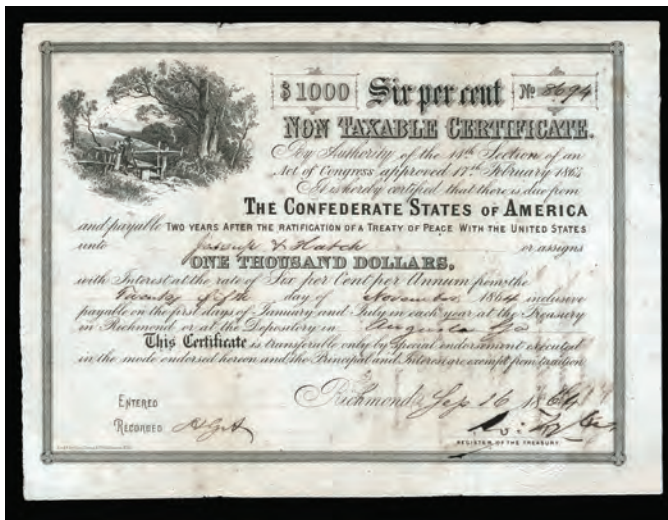 $1000 Six per cent No 8694
NON TAXABLE CERTIFICATE.
By Authority of the 14th Section of an
Act of Congress approved 17th February 1864
It is hereby certified that there is due from
THE CONFEDERATE STATES OF AMERICA
and payable TWO YEARS AFTER THE RATIFICATION OF A TREATY OF PEACE WITH THE UNITED STATES
unto Jessup & Hatch or assigns
ONE THOUSAND DOLLARS,
with Interest at the rate of Six per Cent per Annum from the
Twenty fifth day of November 1864 inclusive
payable on the first days of January and July in each year at the Treasury
in Richmond or at the Depository in Augusta Ga
This Certificate is transferable only by Special endorsement executed
in the mode endorsed hereon and the Principal and Interest are exempt from taxation
Richmond, Sep 26 1864
ENTERED
RECORDED
REGISTER OF THE TREASURY